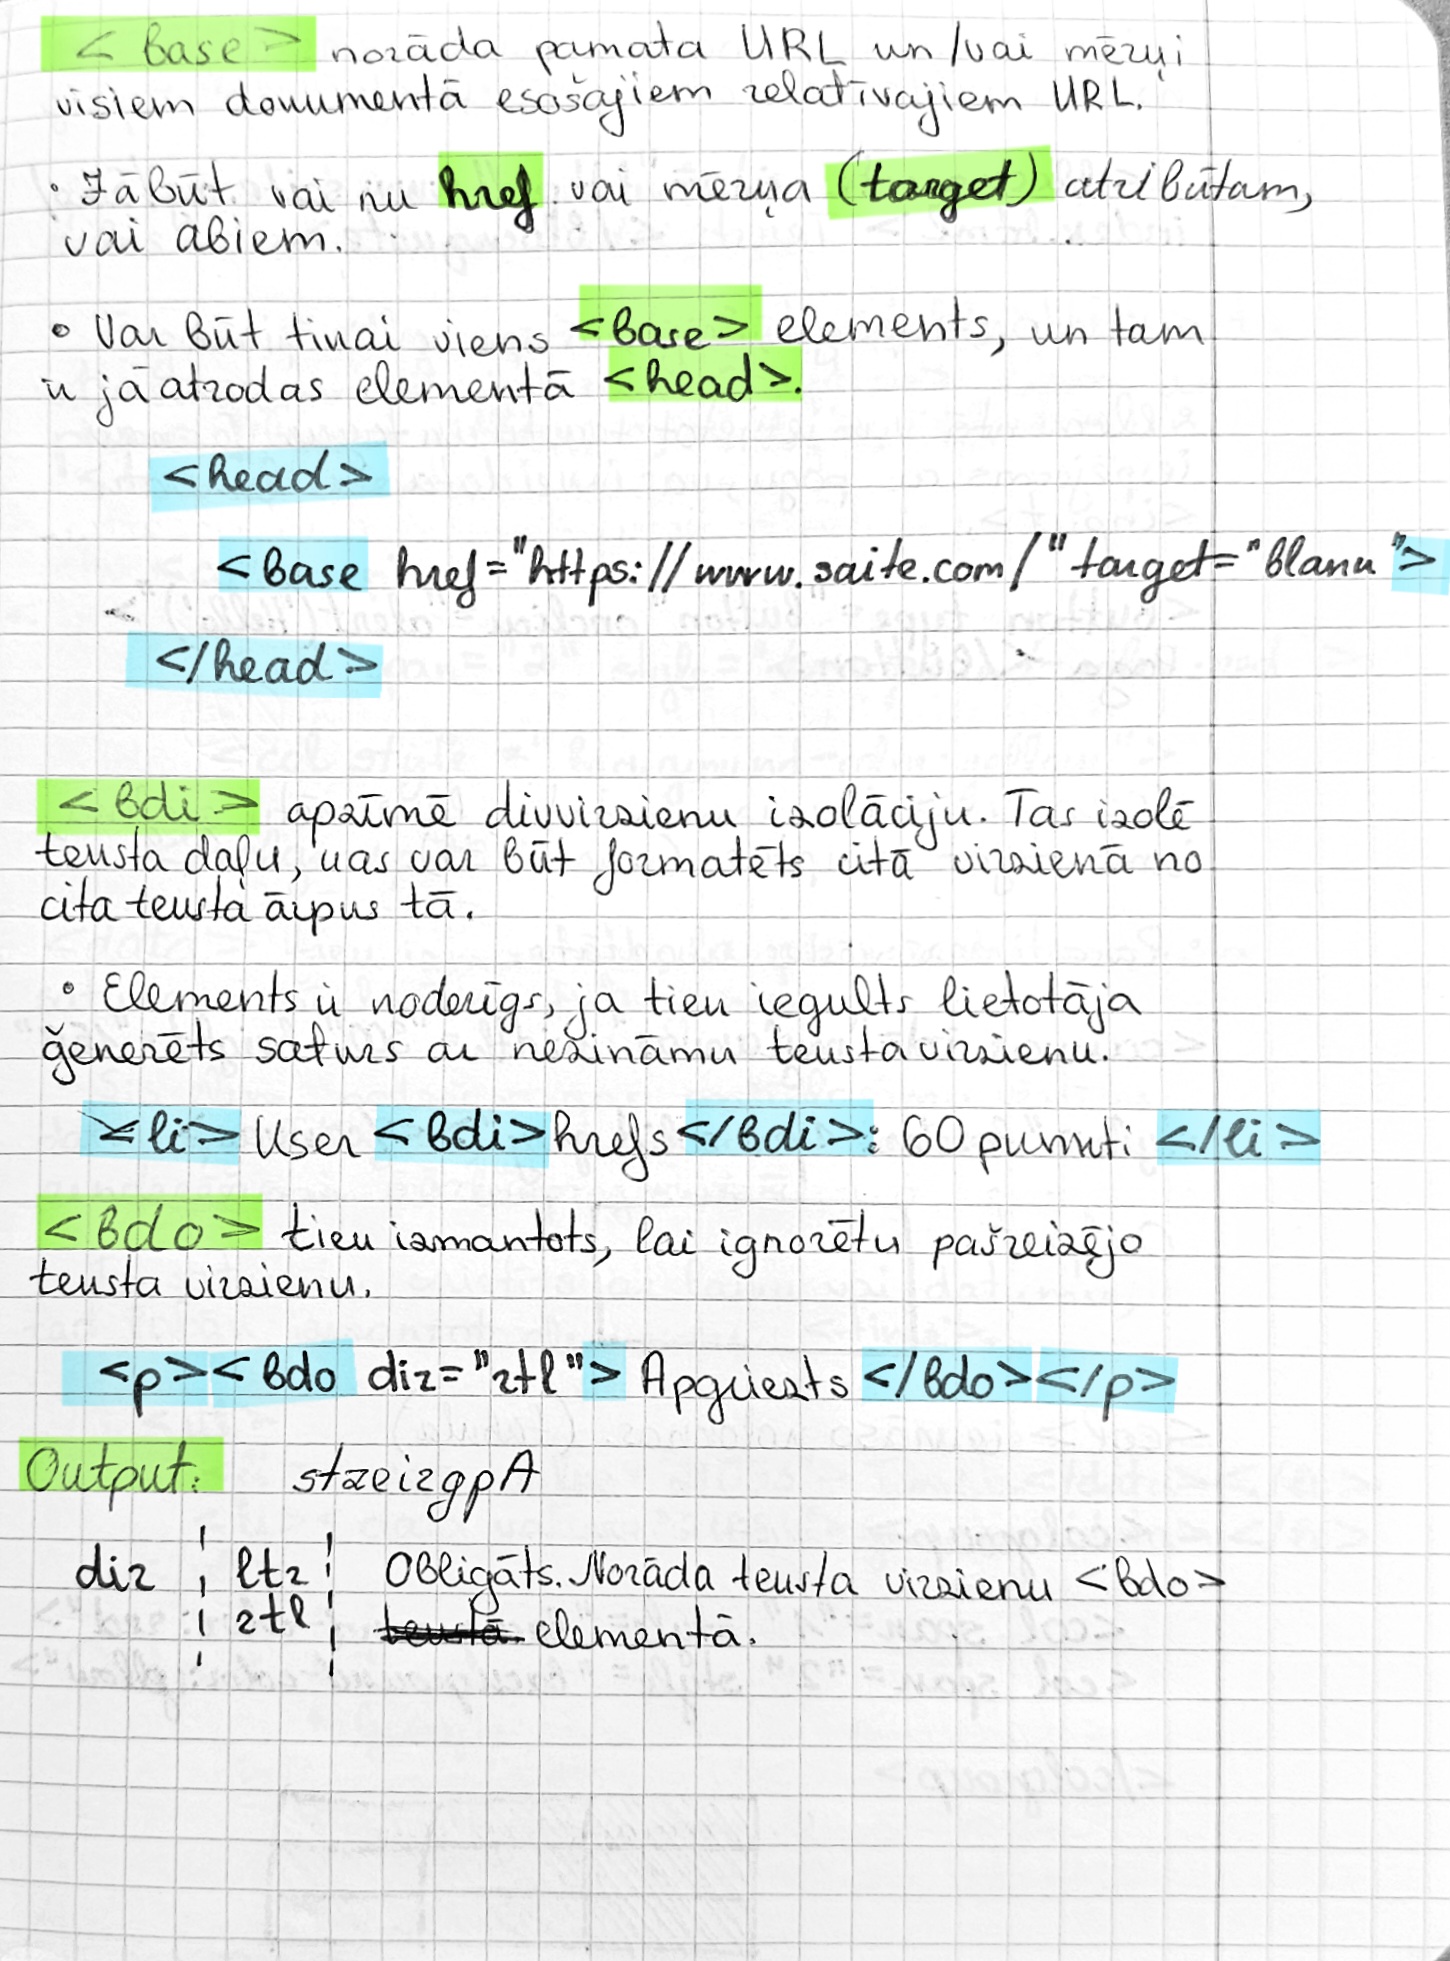 <base> norāda pamata URL un/vai mērķi
visiem dokumentā esošajiem relatīvajiem URL.
• Jābūt vai nu href vai mērķa (target) atribūtam,
vai abiem.
• Var būt tikai viens <base> elements, un tam
ir jāatrodas elementā <head>.
<head>
<base href="https://www.saite.com/" target="blank">
</head>
<bdi> apzīmē divvirzienu izolāciju. Tas izolē
teksta daļu, kas var būt formatēts citā virzienā no
cita teksta ārpus tā.
• Elements ir noderīgs, ja tiek iegults lietotāja
ģenerēts saturs ar nezināmu teksta virzienu.
<li> User <bdi>hrefs</bdi>: 60 punkti </li>
<bdo> tiek izmantots, lai ignorētu pašreizējo
teksta virzienu.
<p><bdo dir="rtl"> Apgriezts </bdo></p>
Output: stzeirgpA
dir ltr Obligāts. Norāda teksta virzienu <bdo>
rtl tekstā elementā.